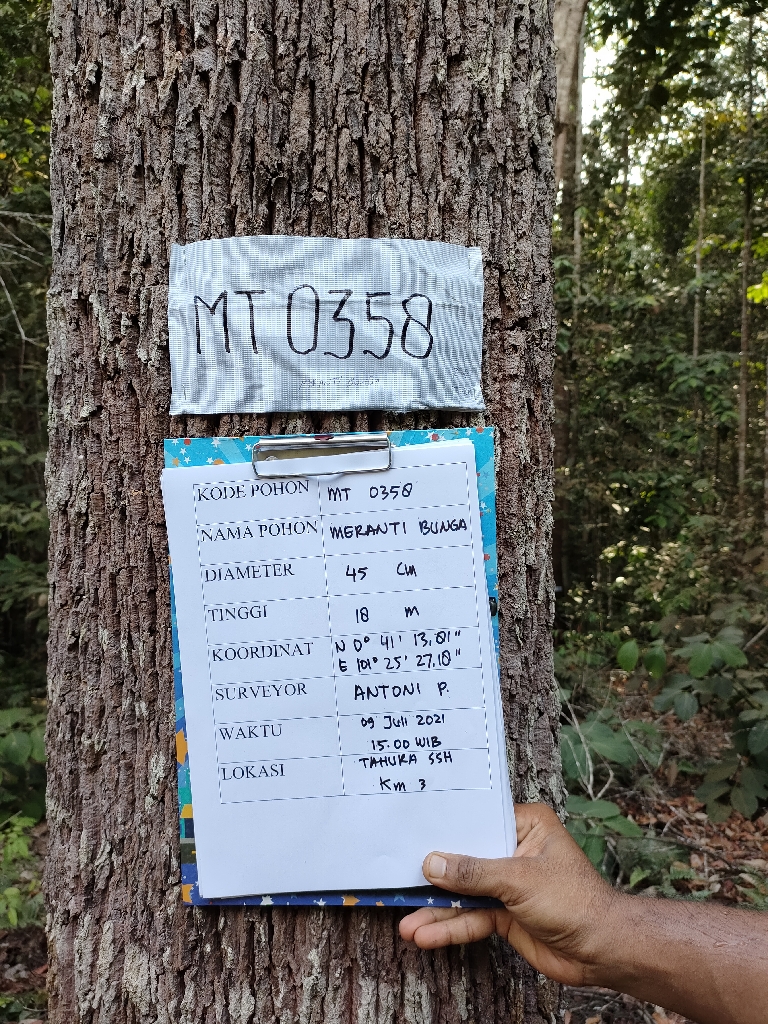 MT 0358
KODE POHON MT 0358
NAMA POHON MERANTI BUNGA
DIAMETER 45 Cm
TINGGI 18 m
KOORDINAT N 0° 41' 13,81"
E 101° 25' 27,18"
SURVEYOR ANTONI P.
WAKTU 09 Juli 2021
15:00 WIB
LOKASI TAHURA SSH
Km 3